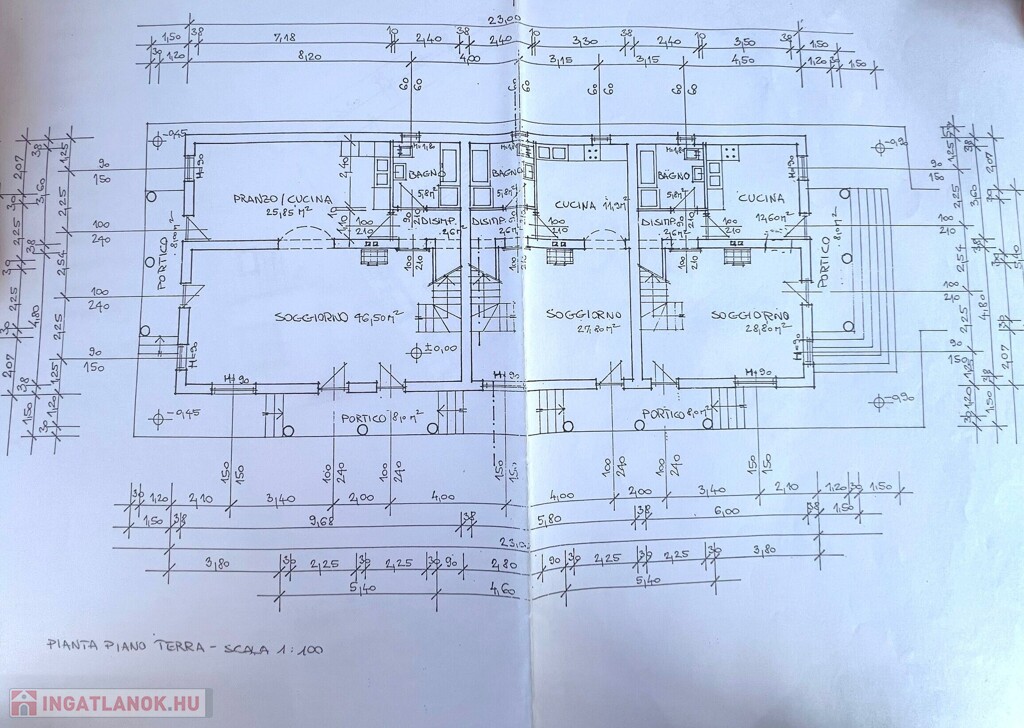 23,00
1,50 38 7,18 10 2,40 38 2,40 10 3,30 38 2,40 10 3,50 38 1,50
38 1,20 8,20 4,00 3,15 3,15 4,50 1,20 38 1,50
60 60 60 60 60 60 60
-0,45
H=90
PRANZO/CUCINA
25,85 m²
2,40
1,10
H=1,80
BAGNO
5,8 m²
BAGNO
5,8 m²
CUCINA 11,9 m²
BAGNO
5,8 m²
CUCINA
12,60 m²
H=90
DISIMP.
2,6 m²
DISIMP.
2,6 m²
DISIMP.
2,6 m²
100
210
100
210
100
210
PORTICO
8,10 m²
PORTICO
8,10 m²
90
150
100
240
100
240
90
150
SOGGIORNO 46,50 m²
SOGGIORNO
27,20 m²
SOGGIORNO
28,80 m²
±0,00
H=90
H=90
H=90
H=90
H=90
H=90
-0,45
PORTICO 8,10 m²
PORTICO 8,10 m²
-0,90
150
150
100
240
100
240
100
240
100
240
150
150
38 1,20 2,10 3,40 2,00 4,00 4,00 2,00 3,40 2,10 1,20 38 1,50
1,50 38 9,68 38 5,80 38 6,00 38 1,50
23,0
3,80 38 2,25 38 2,25 38 90 2,80 90 38 2,25 38 2,25 38 3,80
5,40 4,60 5,40
PIANTA PIANO TERRA - SCALA 1:100
INGATLANOK.HU